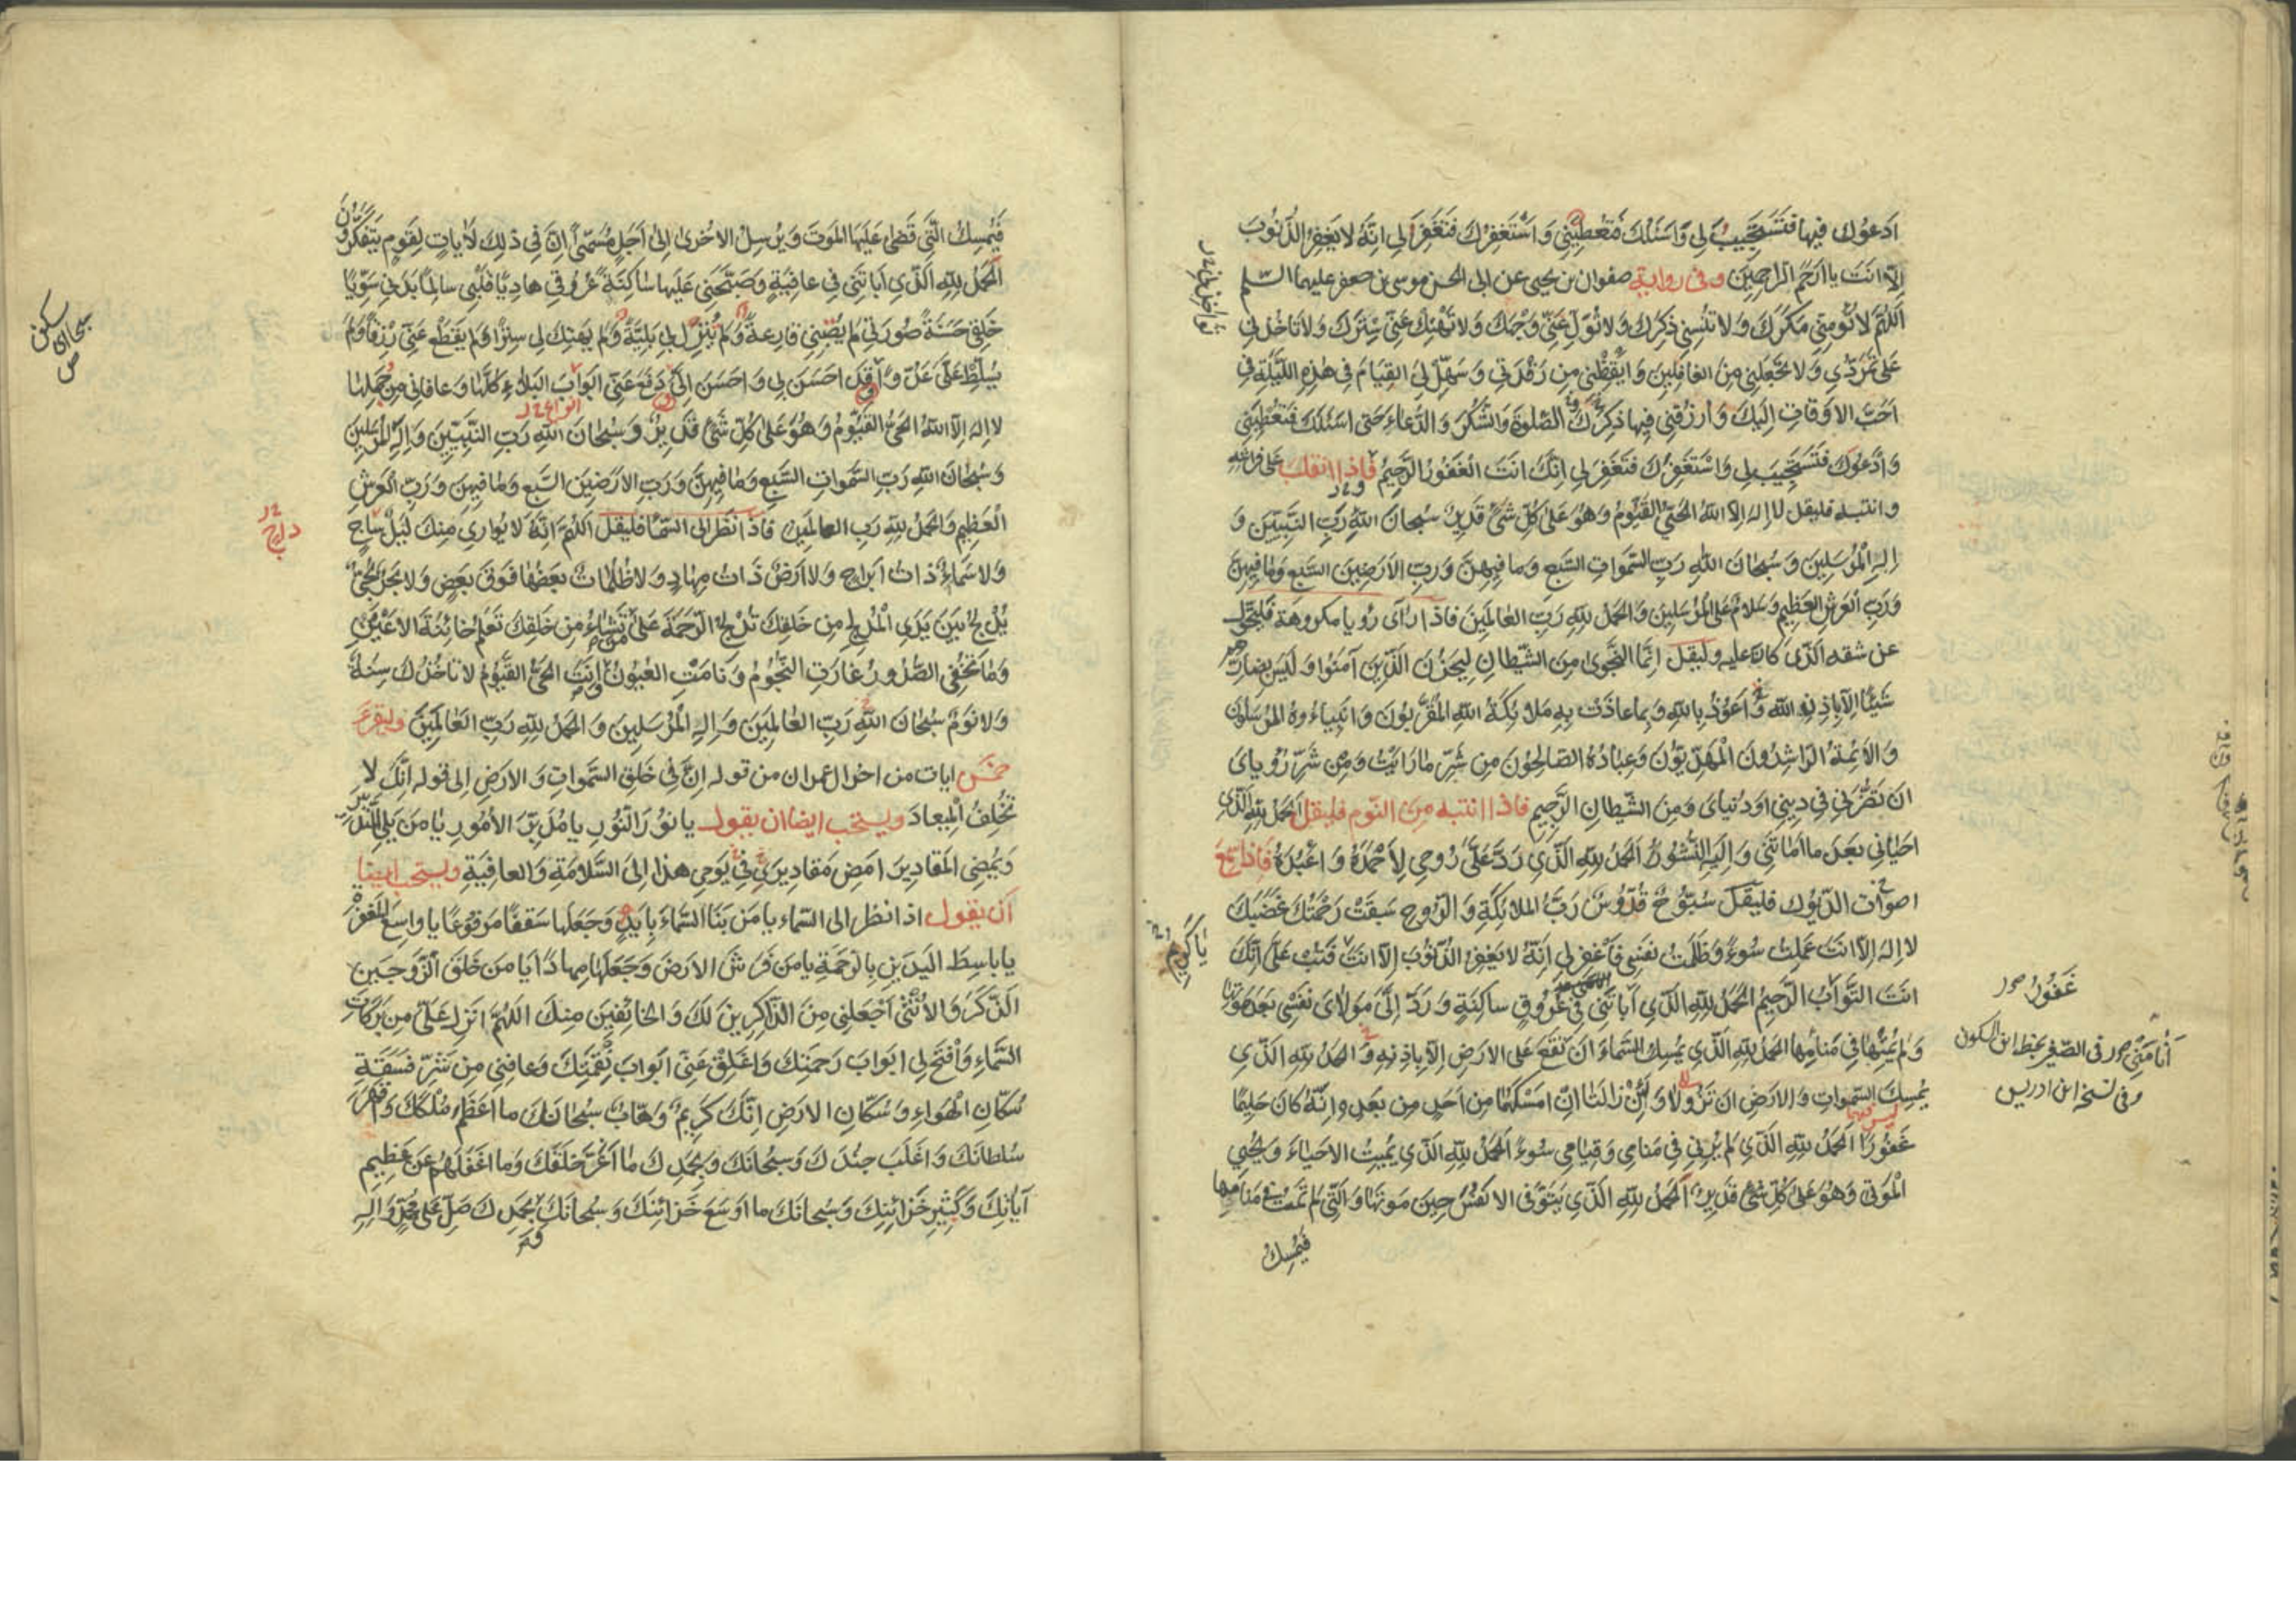 اَدعُوكَ فيها فَتَستَجيبُ لى وَاَسئَلُكَ فَتُعطِيَنِى وَاَستَغفِرُكَ فَتَغفِرَ لى اِنَّهُ لا يَغفِرُ الذُّنُوبَ
اِلاّ اَنتَ يا اَرحَمَ الرّاحِمينَ وفى رواية صفوان بن يحيى عن ابى الحسن موسى بن جعفر عليهما السلم
اَللّهُمَّ لا تُؤمِنّى مَكرَكَ وَلا تُنسِنى ذِكرَكَ وَلا تُوَلِّ عَنّى وَجهَكَ وَلا تَهتِك عَنّى سِترَكَ وَلا تَأخُذنى
عَلى تَمَرُّدى وَلا تَجعَلنى مِنَ الغافِلينَ وَاَيقِظنى مِن رَقدَتى وَسَهِّل لِىَ القِيامَ فى هٰذِهِ اللَّيلَةِ فى
اَحَبِّ الاَوقاتِ اِلَيكَ وَارزُقنى فيها ذِكرَكَ الصَّلوةَ وَالشُّكرَ وَالدُّعاءَ حَتّى اَسئَلَكَ فَتُعطِيَنى
وَاَدعُوَكَ فَتَستَجيبَ لى وَاَستَغفِرُكَ فَتَغفِرَ لى اِنَّكَ اَنتَ الغَفُورُ الرَّحيمُ فاذا انقلب على فراشه
وانتبه فليقل لا اِلهَ اِلاّ اللهُ الحَىُّ القَيُّومُ وَهُوَ عَلى كُلِّ شَىءٍ قَديرٌ سُبحانَ اللهِ رَبِّ النَّبِيّينَ وَ
اِلهِ المُرسَلينَ وَسُبحانَ اللهِ رَبِّ السَّمواتِ السَّبعِ وَما فيهِنَّ وَرَبِّ الاَرَضينَ السَّبعِ وَما فيهِنَّ
وَرَبِّ العَرشِ العَظيمِ وَسَلامٌ عَلَى المُرسَلينَ وَالحَمدُ لِلّهِ رَبِّ العالَمينَ فاذا رأى رؤيا مكروهة فليتحوّل
عن شقه الّذى كان عليه وليقل اِنَّمَا النَّجوى مِنَ الشَّيطانِ لِيَحزُنَ الَّذينَ آمَنُوا وَلَيسَ بِضارِّهِم
شَيئًا اِلاّ بِاِذنِ اللهِ وَاَعُوذُ بِاللهِ وَبِما عاذَت بِهِ مَلائِكَةُ اللهِ المُقَرَّبُونَ وَاَنبِياءُوهُ المُرسَلُونَ
وَالاَئِمَّةُ الرّاشِدُونَ المَهدِيُّونَ وَعِبادُهُ الصّالِحُونَ مِن شَرِّ ما رَاَيتُ وَمِن شَرِّ رُؤياىَ
اَن تَضُرَّنى فى دينى اَو دُنياىَ وَمِنَ الشَّيطانِ الرَّجيمِ فاذا انتبه من النّوم فليقل اَلحَمدُ لِلّهِ الَّذى
اَحيانى بَعدَ ما اَماتَنى وَاِلَيهِ النُّشُورُ اَلحَمدُ لِلّهِ الَّذى رَدَّ عَلَىَّ رُوحى لِاَحمَدَهُ وَاَعبُدَهُ فاذا سمع
اصوات الدّيوك فليقل سُبُّوحٌ قُدُّوسٌ رَبُّ المَلائِكَةِ وَالرُّوحِ سَبَقَت رَحمَتُكَ غَضَبَكَ
لا اِلهَ اِلاّ اَنتَ عَمِلتُ سُوءً وَظَلَمتُ نَفسى فَاغفِر لى اِنَّهُ لا يَغفِرُ الذُّنُوبَ اِلاّ اَنتَ فَتُب عَلَىَّ اِنَّكَ
اَنتَ التَّوّابُ الرَّحيمُ اَلحَمدُ لِلّهِ الَّذى اَباتَنى فى عُرُوقٍ ساكِنَةٍ وَرَدَّ اِلَىَّ مَولاىَ نَفسى بَعدَ مَوتِها
وَلَم يُمِتها فى مَنامِها اَلحَمدُ لِلّهِ الَّذى يُمسِكُ السَّماءَ اَن تَقَعَ عَلَى الاَرضِ اِلاّ بِاِذنِهِ وَالحَمدُ لِلّهِ الَّذى
يُمسِكُ السَّمواتِ وَالاَرضَ اَن تَزُولا وَلَئِن زالَتا اِن اَمسَكَهُما مِن اَحَدٍ مِن بَعدِهِ اِنَّهُ كانَ حَليمًا
غَفُورًا اَلحَمدُ لِلّهِ الَّذى لَم يُرِنى فى مَنامى وَقِيامى سُوءً اَلحَمدُ لِلّهِ الَّذى يُميتُ الاَحياءَ وَيُحيِى
المَوتى وَهُوَ عَلى كُلِّ شَىءٍ قَديرٌ اَلحَمدُ لِلّهِ الَّذى يَتَوَفَّى الاَنفُسَ حينَ مَوتِها وَالَّتى لَم تَمُت فى مَنامِها
فَيُمسِكُ
غَفُورُ
اَنامَنى فى الصغير بخط ابن السكون
وفى نسخة ابن ادريس
يا كَريمُ
فَيُمسِكُ الَّتى قَضى عَلَيهَا المَوتَ وَيُرسِلُ الاُخرى اِلى اَجَلٍ مُسَمًّى اِنَّ فى ذلِكَ لَآياتٍ لِقَومٍ يَتَفَكَّرُونَ
اَلحَمدُ لِلّهِ الَّذى اَباتَنى فى عافِيَةٍ وَصَبَّحَنى عَلَيها ساكِنَةً عُرُوقى هادِيًا قَلبى سالِمًا بَدَنى سَوِيًّا
خَلقى حَسَنَةً صُورَتى لَم يُصِبنى قارِعَةٌ وَلَم يُنزِل بى بَلِيَّةً وَلَم يَهتِك لى سِترًا وَلَم يَقطَع عَنّى رِزقًا وَلَم
يُسَلِّط عَلَىَّ عَدُوًّا وَقَد اَحسَنَ بى وَاَحسَنَ اِلَىَّ وَدَفَعَ عَنّى اَبوابَ البَلاءِ كُلَّها وَعافانى مِن جُملَتِها
لا اِلهَ اِلاّ اللهُ الحَىُّ القَيُّومُ وَهُوَ عَلى كُلِّ شَىءٍ قَديرٌ وَسُبحانَ اللهِ رَبِّ النَّبِيّينَ وَاِلهِ المُرسَلينَ
وَسُبحانَ اللهِ رَبِّ السَّمواتِ السَّبعِ وَما فيهِنَّ وَرَبِّ الاَرَضينَ السَّبعِ وَما فيهِنَّ وَرَبِّ العَرشِ
العَظيمِ وَالحَمدُ لِلّهِ رَبِّ العالَمينَ فاذا نظر الى السّماء فليقل اَللّهُمَّ اِنَّهُ لا يُوارى مِنكَ لَيلٌ ساجٍ
وَلا سَماءٌ ذاتُ اَبراجٍ وَلا اَرضٌ ذاتُ مِهادٍ وَلا ظُلُماتٌ بَعضُها فَوقَ بَعضٍ وَلا بَحرٌ لُجِّىٌّ
يُدلِجُ بَينَ يَدَىِ المُدلِجِ مِن خَلقِكَ تُدلِجُ الرَّحمَةَ عَلى مَن تَشاءُ مِن خَلقِكَ تَعلَمُ خائِنَةَ الاَعيُنِ
وَما تُخفِى الصُّدُورُ غارَتِ النُّجُومُ وَنامَتِ العُيُونُ وَاَنتَ الحَىُّ القَيُّومُ لا تَأخُذُكَ سِنَةٌ
وَلا نَومٌ سُبحانَ اللهِ رَبِّ العالَمينَ وَاِلهِ المُرسَلينَ وَالحَمدُ لِلّهِ رَبِّ العالَمينَ وليقرء
خمس ايات من اخر ال عمران من قوله اِنَّ فى خَلقِ السَّمواتِ وَالاَرضِ الى قوله اِنَّكَ لا
تُخلِفُ الميعادَ ويستحب ايضا ان يقول يا نُورَ النُّورِ يا مُدَبِّرَ الاُمُورِ يا مَن يَلِى التَّدبيرَ
وَيُمضِى المَقاديرَ اَمضِ مَقاديرى فى يَومى هذا اِلَى السَّلامَةِ وَالعافِيَةِ ويستحب ايضا
ان يقول اذا نظر الى السّماء يا مَن بَنَى السَّماءَ بِاَيدٍ وَجَعَلَها سَقفًا مَرفُوعًا يا واسِعَ المَغفِرَةِ
يا باسِطَ اليَدَينِ بِالرَّحمَةِ يا مَن فَرَشَ الاَرضَ وَجَعَلَها مِهادًا يا مَن خَلَقَ الزَّوجَينِ
الذَّكَرَ وَالاُنثى اِجعَلنى مِنَ الذّاكِرينَ لَكَ وَالخائِفينَ مِنكَ اَللّهُمَّ اَنزِل عَلَىَّ مِن بَرَكاتِ
السَّماءِ وَافتَح لى اَبوابَ رَحمَتِكَ وَاَغلِق عَنّى اَبوابَ نِقمَتِكَ وَعافِنى مِن شَرِّ فَسَقَةِ
سُكّانِ الهَواءِ وَسُكّانِ الاَرضِ اِنَّكَ كَريمٌ وَهّابٌ سُبحانَكَ ما اَعظَمَ مُلكَكَ وَقَهَرَ
سُلطانَكَ وَاَغلَبَ جُندَكَ وَسُبحانَكَ وَبِحَمدِكَ ما اَغَرَّ خَلقَكَ وَما اَغفَلَهُم عَن عَظيمِ
آياتِكَ وَكَثيرِ خَزائِنِكَ وَسُبحانَكَ ما اَوسَعَ خَزائِنَكَ وَسُبحانَكَ بِحَمدِكَ صَلِّ عَلى مُحَمَّدٍ وَآلِهِ